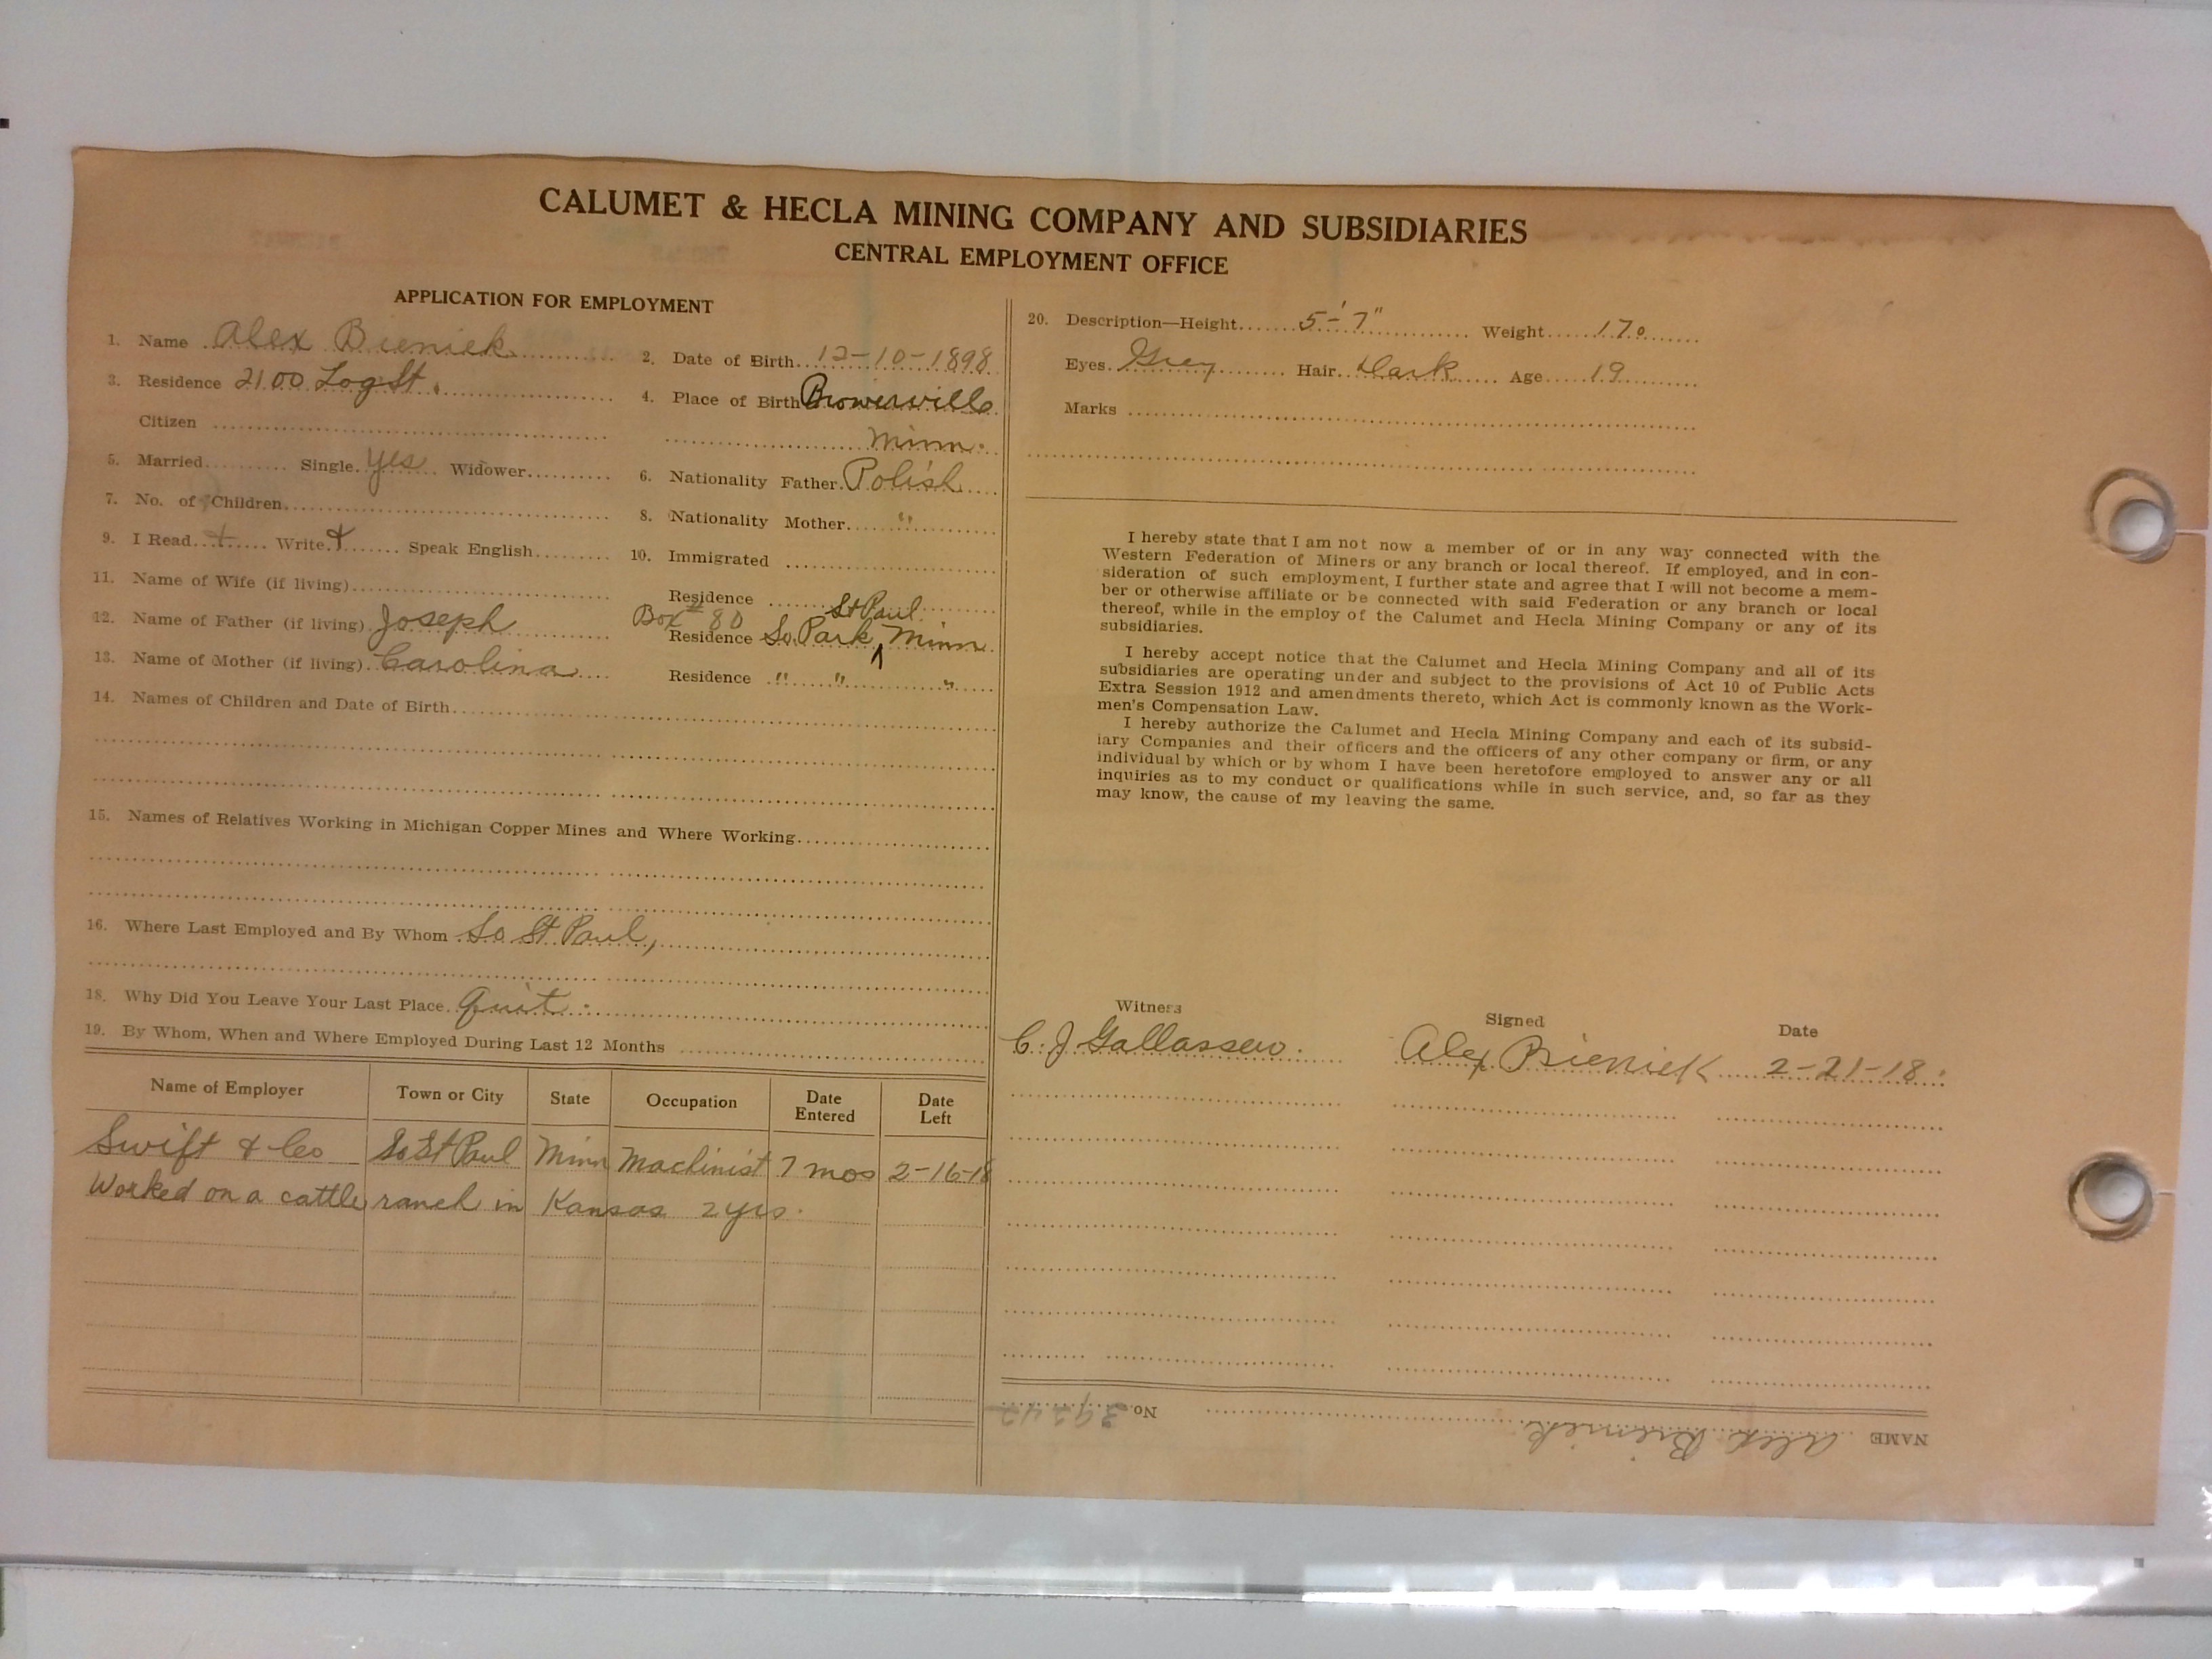 CALUMET & HECLA MINING COMPANY AND SUBSIDIARIES
CENTRAL EMPLOYMENT OFFICE
APPLICATION FOR EMPLOYMENT
1. Name Alex Bieniek
2. Date of Birth 12-10-1898
3. Residence 2100 Log St.
4. Place of Birth Browerville
Citizen
Minn.
5. Married Single yes Widower
6. Nationality Father Polish
7. No. of Children
8. Nationality Mother "
9. I Read + Write + Speak English
10. Immigrated
11. Name of Wife (if living)
Residence
12. Name of Father (if living) Joseph
Box # 80 St Paul
Residence So. Park, Minn.
13. Name of Mother (if living) Carolina
Residence " " "
14. Names of Children and Date of Birth
15. Names of Relatives Working in Michigan Copper Mines and Where Working
16. Where Last Employed and By Whom So St Paul,
18. Why Did You Leave Your Last Place quit.
19. By Whom, When and Where Employed During Last 12 Months
Name of Employer Town or City State Occupation Date Entered Date Left
Swift & Co So St Paul Minn Machinist 7 mos 2-16-18
Worked on a cattle ranch in Kansas 2 yrs.
20. Description—Height 5-'7" Weight 170
Eyes Grey Hair Dark Age 19
Marks
I hereby state that I am not now a member of or in any way connected with the
Western Federation of Miners or any branch or local thereof. If employed, and in con-
sideration of such employment, I further state and agree that I will not become a mem-
ber or otherwise affiliate or be connected with said Federation or any branch or local
thereof, while in the employ of the Calumet and Hecla Mining Company or any of its
subsidiaries.
I hereby accept notice that the Calumet and Hecla Mining Company and all of its
subsidiaries are operating under and subject to the provisions of Act 10 of Public Acts
Extra Session 1912 and amendments thereto, which Act is commonly known as the Work-
men's Compensation Law.
I hereby authorize the Calumet and Hecla Mining Company and each of its subsid-
iary Companies and their officers and the officers of any other company or firm, or any
individual by which or by whom I have been heretofore employed to answer any or all
inquiries as to my conduct or qualifications while in such service, and, so far as they
may know, the cause of my leaving the same.
Witness Signed Date
C. J. Alex Bieniek 2-21-18
NAME Alex Bieniek No. 39242